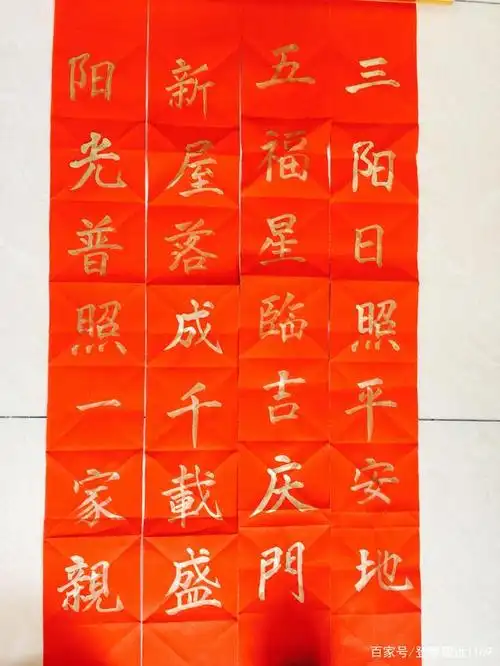 三阳日照平安地
五福星臨吉庆門
新屋落成千載盛
阳光普照一家親
百家号/